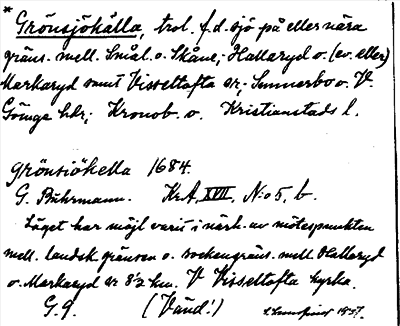 * Grönsjökälla, trol. f.d. sjö på eller nära
gräns. mell. Smål. o. Skåne; Hallaryd o. (ev. eller)
Markaryd samt Visseltofta sr; Sunnerbo o. V.
Göinge hdr; Kronob. o. Kristianstads l.
Grönsiökella 1684.
G. Buhrmann. KrA, XVII, N:o 5, b.
Läget har möjl varit i närh. av mötespunkten
mell. landsk. gränsen o. sockengräns. mell. Hallaryd
o. Markaryd sr 8½ km. V Visseltofta kyrka.
G. 9. (Vänd!) 1937.